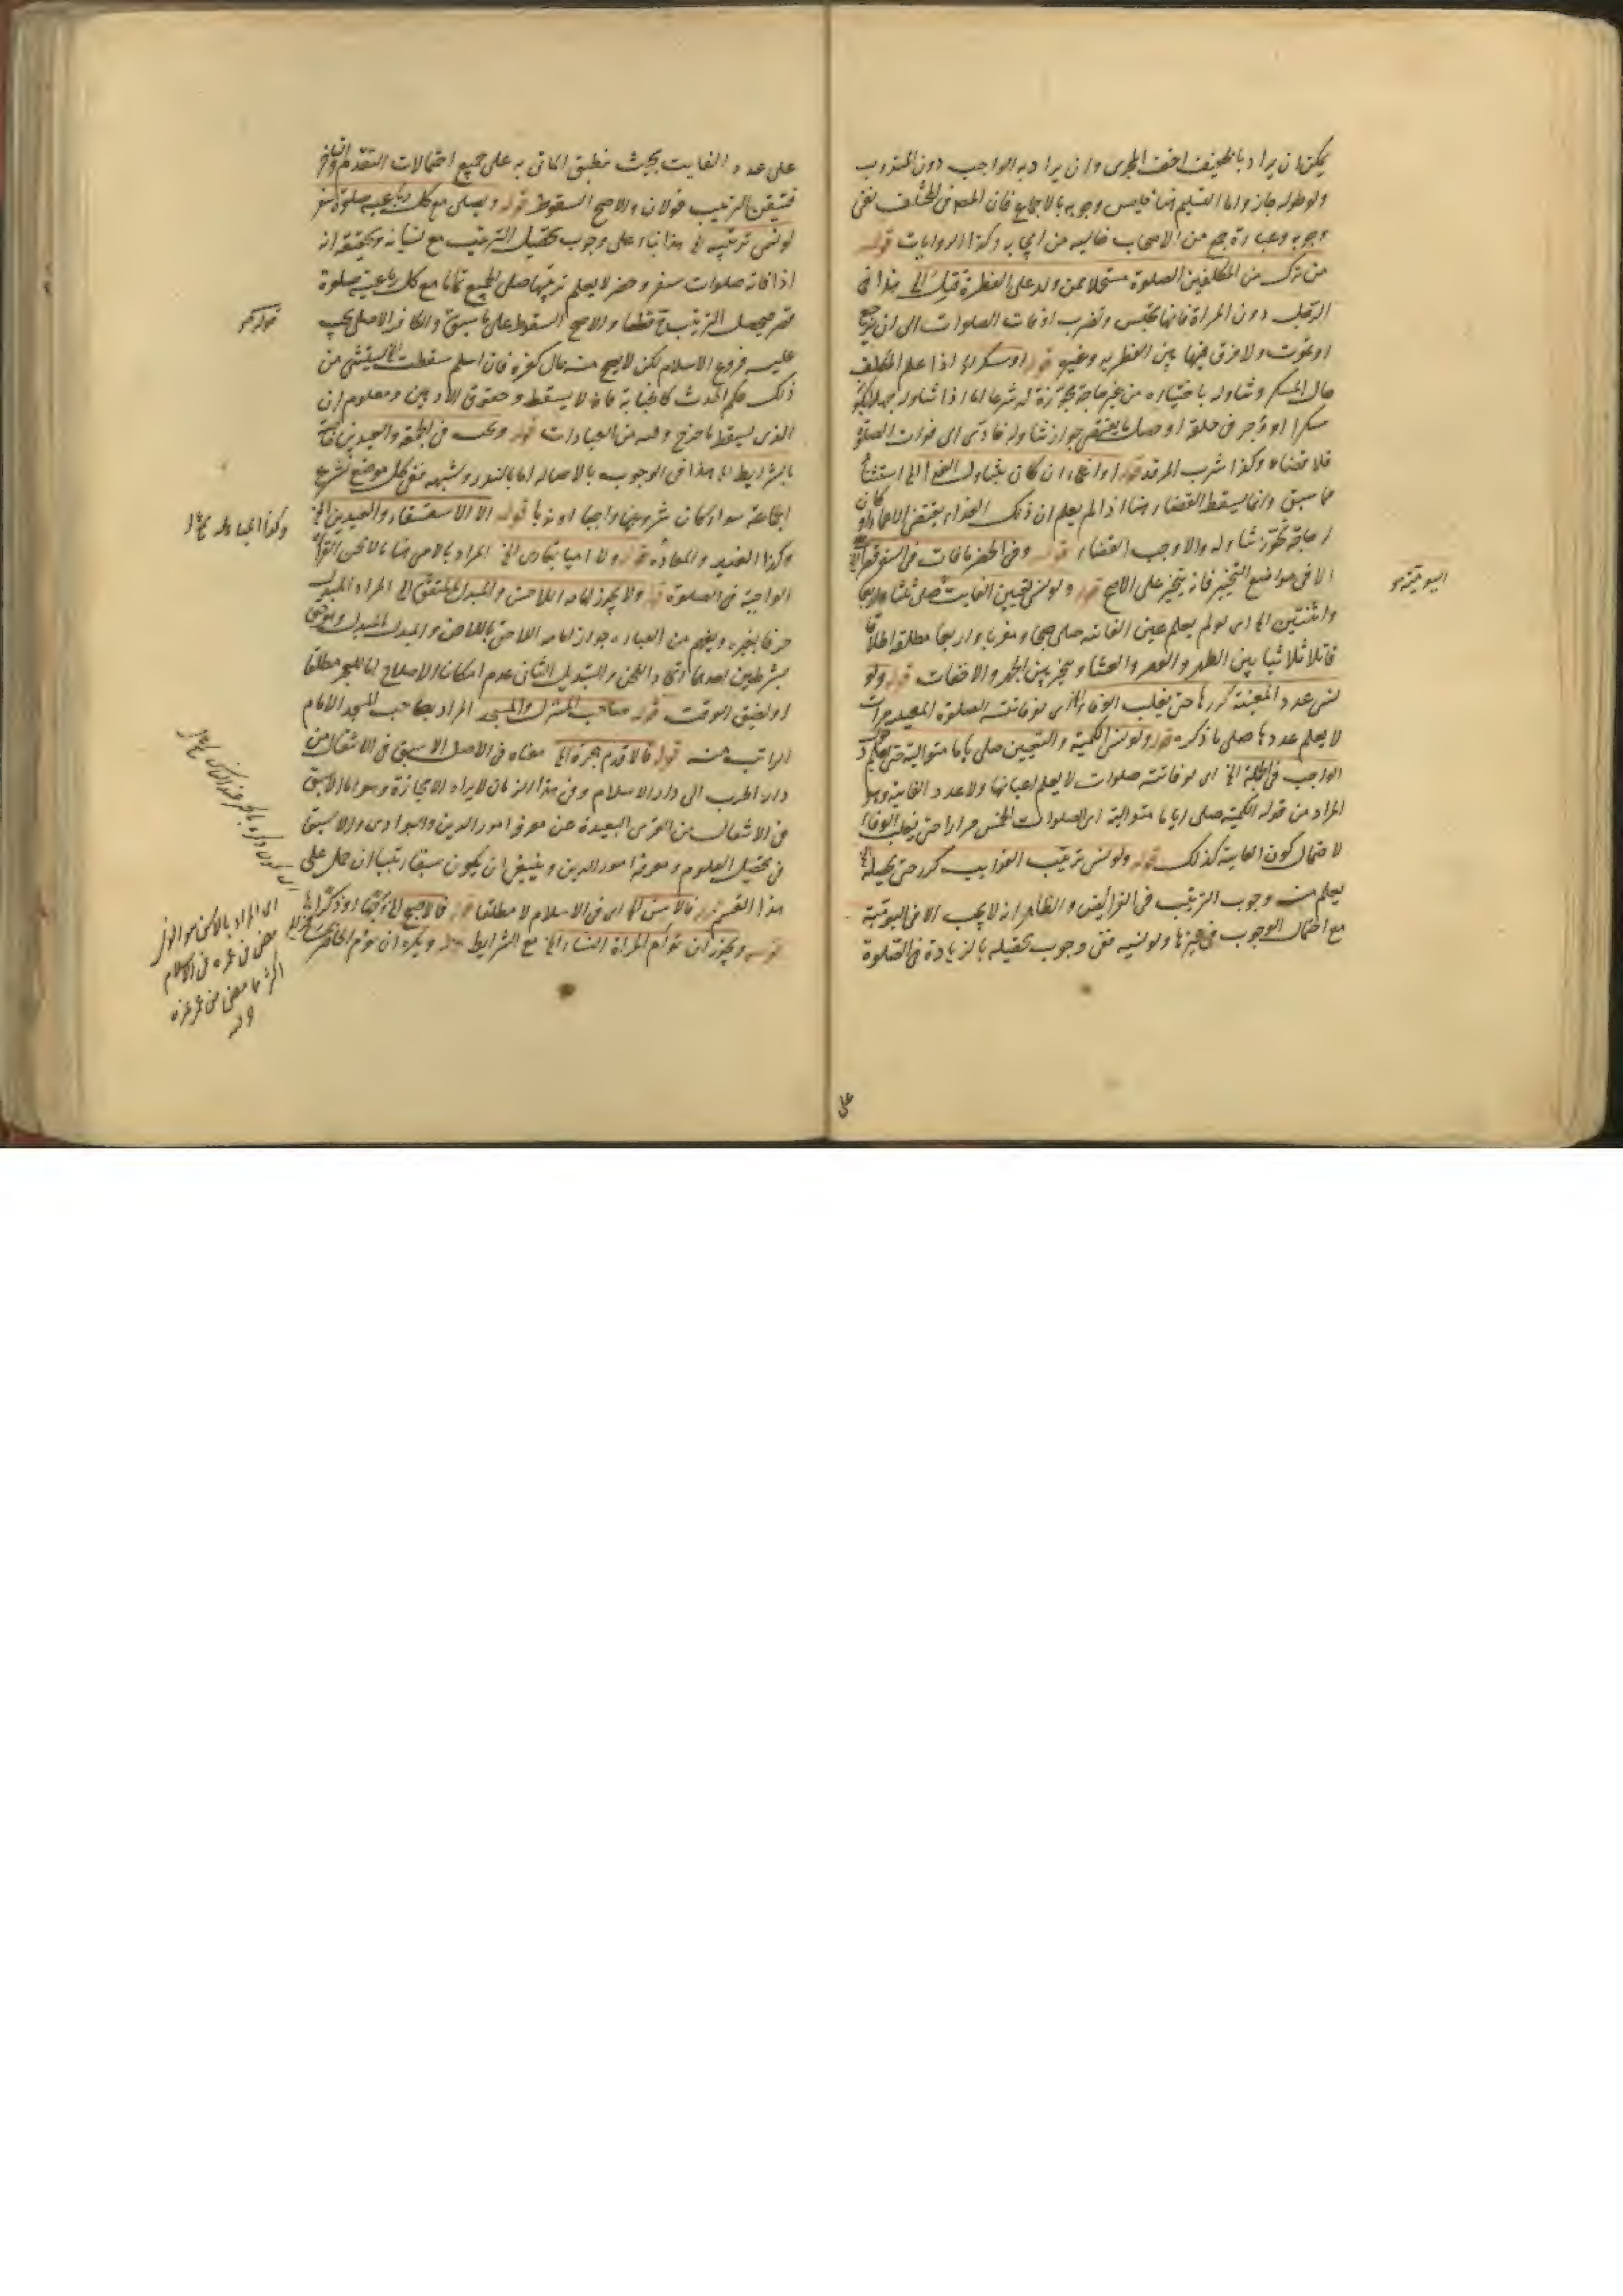 يمكن ان يراد بالخفيف اخف المجزى وان يراد به الواجب دون المندوب
ولو طوله جاز واما التسليم هنا فليس وجوبه بالاجماع فان المص فى المختلف نفى
وجوبه وعبارة جمع من الاصحاب خاليه من ايجابه وكذا الروايات قوله
من ترك من المكلفين الصلوة مستحلا ممن ولد على الفطرة قتل الخ هذا فى
الرجل دون المراة فانها تحبس وتضرب اوقات الصلوات الى ان تتوب
او تموت ولا فرق فيها بين الفطريه وغيره قوله او سكر الخ اذا علم المكلف
حال المسكر وتناوله باختياره من غير حاجة مجوزة له شرعا اما اذا تناوله جهلا بكونه
مسكرا او وُجر فى حلقه او حصل ما يقتضى جواز تناوله فادى الى فوات الصلوة
فلا قضاء وكذا شرب المرقد قوله او اغماء ان كان بتناول الغذا الخ استثناء
مما سبق وانما يسقط القضاء هنا اذا لم يعلم ان ذلك الغذاء يقتضى الاغماء او كان
لحاجة تجوز تناوله والا وجب القضاء قوله وفى الحضر ما فات فى السفر قصرا الخ
الا فى مواضع التخيير فانه يتخير على الاصح قوله ولو نسى تعيين الفايت صلى ثلثا واربعا
واثنتين الخ اى لو لم يعلم عين الفائته صلى صبحا ومغربا واربعا مطلقه اطلاقا
ثلاثيا بين الظهر والعصر والعشاء ويتخير بين الجهر والاخفات قوله ولو
نسى عدد المعينة كررها حتى يغلب الوفاء الخ اى لو فاتته الصلوة المعينه مرات
لا يعلم عددها صلى ما ذكره قوله ولو نسى الكمية والتعيين صلى اياما متوالية حتى يعلم دخول
الواجب فى الجملة الخ اى لو فاتته صلوات لا يعلم اعيانها ولا عدد الفايته وهو
المراد من قوله الكمية صلى اياما متوالية اى الصلوات الخمس مرارا حتى يغلب الوفاء
لاحتمال كون الفايته كذلك قوله ولو نسى ترتيب الفوايت كرر حتى يحصله الخ
يعلم منه وجوب الترتيب فى الفرائض والظاهر انه لا يجب الا فى اليومية
مع احتمال الوجوب فى غيرها ولو نسيه ففى وجوب تحصيله بالزيادة فى الصلوة
على
على عدد الفايت بحيث ينطبق الماتى به على جميع احتمالات التقدم والتاخر
فتيقن الترتيب قولان والاصح السقوط قوله ويصلى مع كل رباعية صلوة سفر
لو نسى ترتيبه الخ هذا بناء على وجوب تحصيل الترتيب مع نسيانه وتحقيقه انه
اذا فاته صلوات سفر وحضر لا يعلم ترتيبها صلى الجميع تماما مع كل رباعية صلوة
قصر فيحصل الترتيب قطعا والاصح السقوط على ما سبق والكافر الاصلى يجب
عليه فروع الاسلام لكن لا تصح منه حال كفره فان اسلم سقطت الخ يستثنى من
ذلك حكم الحدث كالجنابة فانه لا يسقط وحقوق الادميين ومعلوم ان
الذى يسقط ما خرج وقته من العبادات قوله وتجب فى الجمعة والعيدين خاصة
بالشرايط الخ هذا فى الوجوب بالاصاله اما بالنذر وشبهه ففى كل موضع تشرع
الجماعة سواء كان شروعها واجبا او ندبا قوله الا الاستسقاء والعيدين الخ
وكذا الغدير والمعاده قوله ولا اميا بقارى الخ المراد بالامى هنا من لا يحسن القراة
الواجبة فى الصلوة قوله ولا يجوز امامه اللاحن والمبدل بالمتقن الخ المراد المبدل
حرفا بغيره ويفهم من العباره جواز امامه اللاحق باللاحن والمبدل بالمبدل وهو حق
بشرطين احدهما اتحاد اللحن والتبديل الثانى عدم امكان الاصلاح اما للعجز مطلقا
او لضيق الوقت قوله صاحب المنزل والمسجد المراد بصاحب المسجد الامام
الراتب منه قوله فالاقدم هجرة الخ معناه فى الاصل الاسبق فى الانتقال من
دار الحرب الى دار الاسلام وفى هذا الزمان لا يراد الا مجازة وهو اما الاسبق
فى الانتقال من القرى البعيدة عن معرفة امور الدين والبوادى والاسبق
فى تحصيل العلوم ومعرفة امور الدين وينبغى ان يكون سبقا رتبيا ان حمل على
هذا القسم قوله فالاسن الخ اى فى الاسلام لا مطلقا قوله فالاصبح الخ وجها او ذكرا
قوله ويجوز ان تؤم المراة النساء الخ مع الشرايط قوله ويكره ان يؤم الحاضر
اى المراد بالاسن هو الذى
مضى من عمره فى الاسلام
اكثر مما مضى من عمر غيره